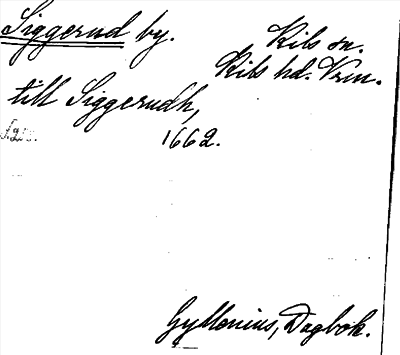 Siggerud by. Kils sn.
Kils hd. Vrm.
till Siggerudh,
1662.
Gyllenius, Dagbok.